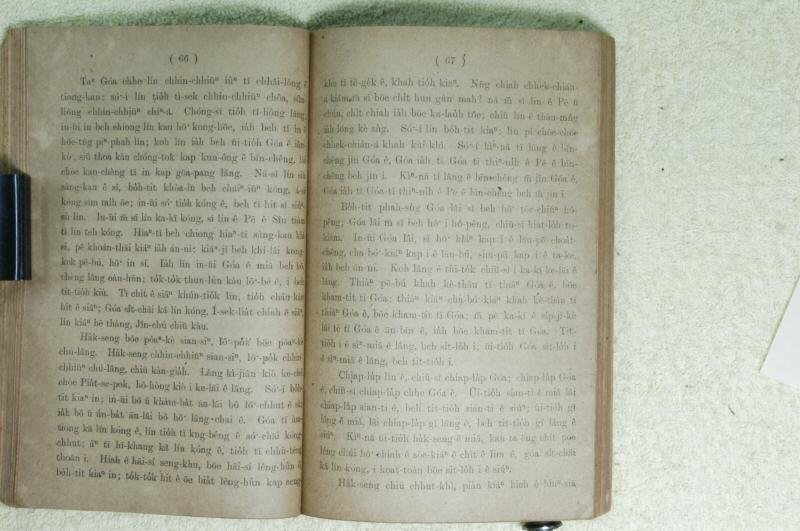 ( 66 )
Taⁿ Góa chhe lín chhin-chhiūⁿ iûⁿ tī chhâi-lông ê
tiong-kan; só͘-í lín tio̍h tì-sek chhin-chhiūⁿ chôa,
liông chhin-chhiūⁿ Chóng-sī tio̍h tî-hông lâng,
in-ūi in beh chiong lín kau hō͘ kong-hōe, iáh beh tī in ê
hōe-tn̂g piⁿ-phah lín; koh lín iáh beh ūi-tio̍h Góa ê
kò͘, siū thoa kàu chóng-tok kap kun-ông ê bīn-chêng,
chòe kan-chèng tī in kap gōa-pang lâng. Nā-sī lín
sàng-kan ê sî, bo̍h-tit khòa-lū beh chuíⁿ-iūⁿ kóng,
kóng sím mi̍h ōe; in-ūi só͘ tio̍h kóng ê, beh tī hit sî
sù lín. In-ūi m̄ sī lín ka-kī kóng, sī lín ê Pē ê Sîn
tī lín teh kóng. Hiaⁿ-tī beh chiong hiaⁿ-tī sàng-kau
sí, pē khoán-thāi kiáⁿ iáh án-ni; kiáⁿ-jî beh khí-lâi kong-
kek pē-bú, hō͘ in sí. Iáh lín in-ūi Góa ê miâ beh
chèng lâng oàn-hūn; to̍k-to̍k thun-lún kàu lō͘-bé ê,
tit-tio̍h kiù. Tī chit ê siâⁿ khún-tio̍k lín, tio̍h cháu
hit ê siâⁿ; Góa si̍t-chāi kā lín kóng, Í-sek-lia̍t chiah ê siâⁿ,
lín kiâⁿ bē thàng, Jîn-chú chiū kàu.
Ha̍k-seng bōe pôaⁿ-kè sian-siⁿ, lô͘-po̍k bōe pôaⁿ-kè
chú-lâng. Ha̍k-seng chhin-chhiūⁿ sian-siⁿ, lô͘-po̍k chhin-
chhiūⁿ chú-lâng, chiū kàu-gia̍h. Lâng kì-jiân kiò ke-chú
chòe Pia̍t-se-pok, hô-hòng kiò i ke-lāi ê lâng. Só͘-í bo̍h-
tit kiaⁿ in; in-ūi bô ū khàm-bàt āu-lâi bô lō͘-chhut ê sū;
iáh bô ū ún-bàt āu-lâi bô hō͘ lâng-chai ê. Góa tī àm-
tiong kā lín kóng ê, lín tio̍h tī kng-bêng ê só͘-chāi kóng-
chhut; àⁿ tī hī-khang kā lín kóng ê, tio̍h tī chhù-téng
thoân i. Hiah ê hāi-sí seng-khu, bōe hāi-sí lêng-hûn ê,
bo̍h-tit kiaⁿ in; to̍k-to̍k hit ê ōe bia̍t lêng-hûn kap seng-
( 67 )
khu tī tē-ge̍k ê, khah tio̍h kiaⁿ. Nn̄g chiah chhek-chián-
á kiám m̄ sī bōe chi̍t hun gûn mah? nā m̄ sī lín ê Pē ú
chún, chi̍t chiah iáh bōe ka-lau̍h tōe; chiū lín ê thâu-mn̂g
iáh lóng kè sǹg. Só͘-í lín bo̍h-tit kiaⁿ; lín pí chōe-chōe
chhek-chián-á khah kùi-khì. Só͘-í kìⁿ-nā tī lâng ê bīn-
chêng jīn Góa ê, Góa iáh tī Góa tī thiⁿ-nih ê Pē ê bīn-
chêng beh jīn i. Kìⁿ-nā tī lâng ê bīn-chêng m̄ jīn Góa ê,
Góa iáh tī Góa tī thiⁿ-nih ê Pē ê bīn-chêng beh m̄ jīn i.
Bo̍h-tit phah-sǹg Góa lâi sī beh hō͘ tōe-chiūⁿ hô-
pêng; Góa lâi m̄ sī beh hō͘ i hô-pêng, chiū-sī hia̍t-lo̍h to-
kiàm. In-ūi Góa lâi, sī hō͘ kiáⁿ kap i ê lāu-pē choa̍t-
chêng, cha-bó͘-kiáⁿ kap i ê lāu-bú, sin-pū kap i ê ta-ke,
iáh beh án-ni. Koh lâng ê tùi-te̍k chiū-sī i ka-kī ke-lāi ê
lâng. Thiàⁿ pē-bú khah kè-thâu tī thiàⁿ Góa ê, bōe
kham-tit tī Góa; thiàⁿ kiáⁿ cha-bó͘-kiáⁿ khah kè-thâu tī
thiàⁿ Góa ê, bōe kham-tit tī Góa; m̄ pē ka-kī ê si̍p-jī-kè
lâi tè tī Góa ê āu-bīn ê, iáh bōe kham-tit tī Góa. Tit-
tio̍h i ê sìⁿ-miā ê lâng, beh sit-lo̍h i; ūi-tio̍h Góa sit-lo̍h i
ê sìⁿ-miā ê lâng, beh tit-tio̍h i.
Chiap-la̍p lín ê, chiū-sī chiap-la̍p Góa; chiap-la̍p Góa
ê, chiū-sī chiap-la̍p chhe Góa ê. Ūi-tio̍h sian-ti ê miâ lâi
chiap-la̍p sian-ti ê, beh tit-tio̍h sian-ti ê siúⁿ; ūi-tio̍h gī
lâng ê miâ, lâi chiap-la̍p gī lâng ê, beh tit-tio̍h gī lâng ê
siúⁿ. Kìⁿ-nā ūi-tio̍h ha̍k-seng ê miâ, kan-ta ēng chi̍t poe
léng chúi hō͘ chiah ê sòe-kiáⁿ ê chi̍t ê lim ê, góa si̍t-chāi
kā lín kóng, i koat-toàn bōe sit-lo̍h i ê siúⁿ.
Ha̍k-seng chiū chhut-khì, piàn kiâⁿ hiah ê hiuⁿ-siā